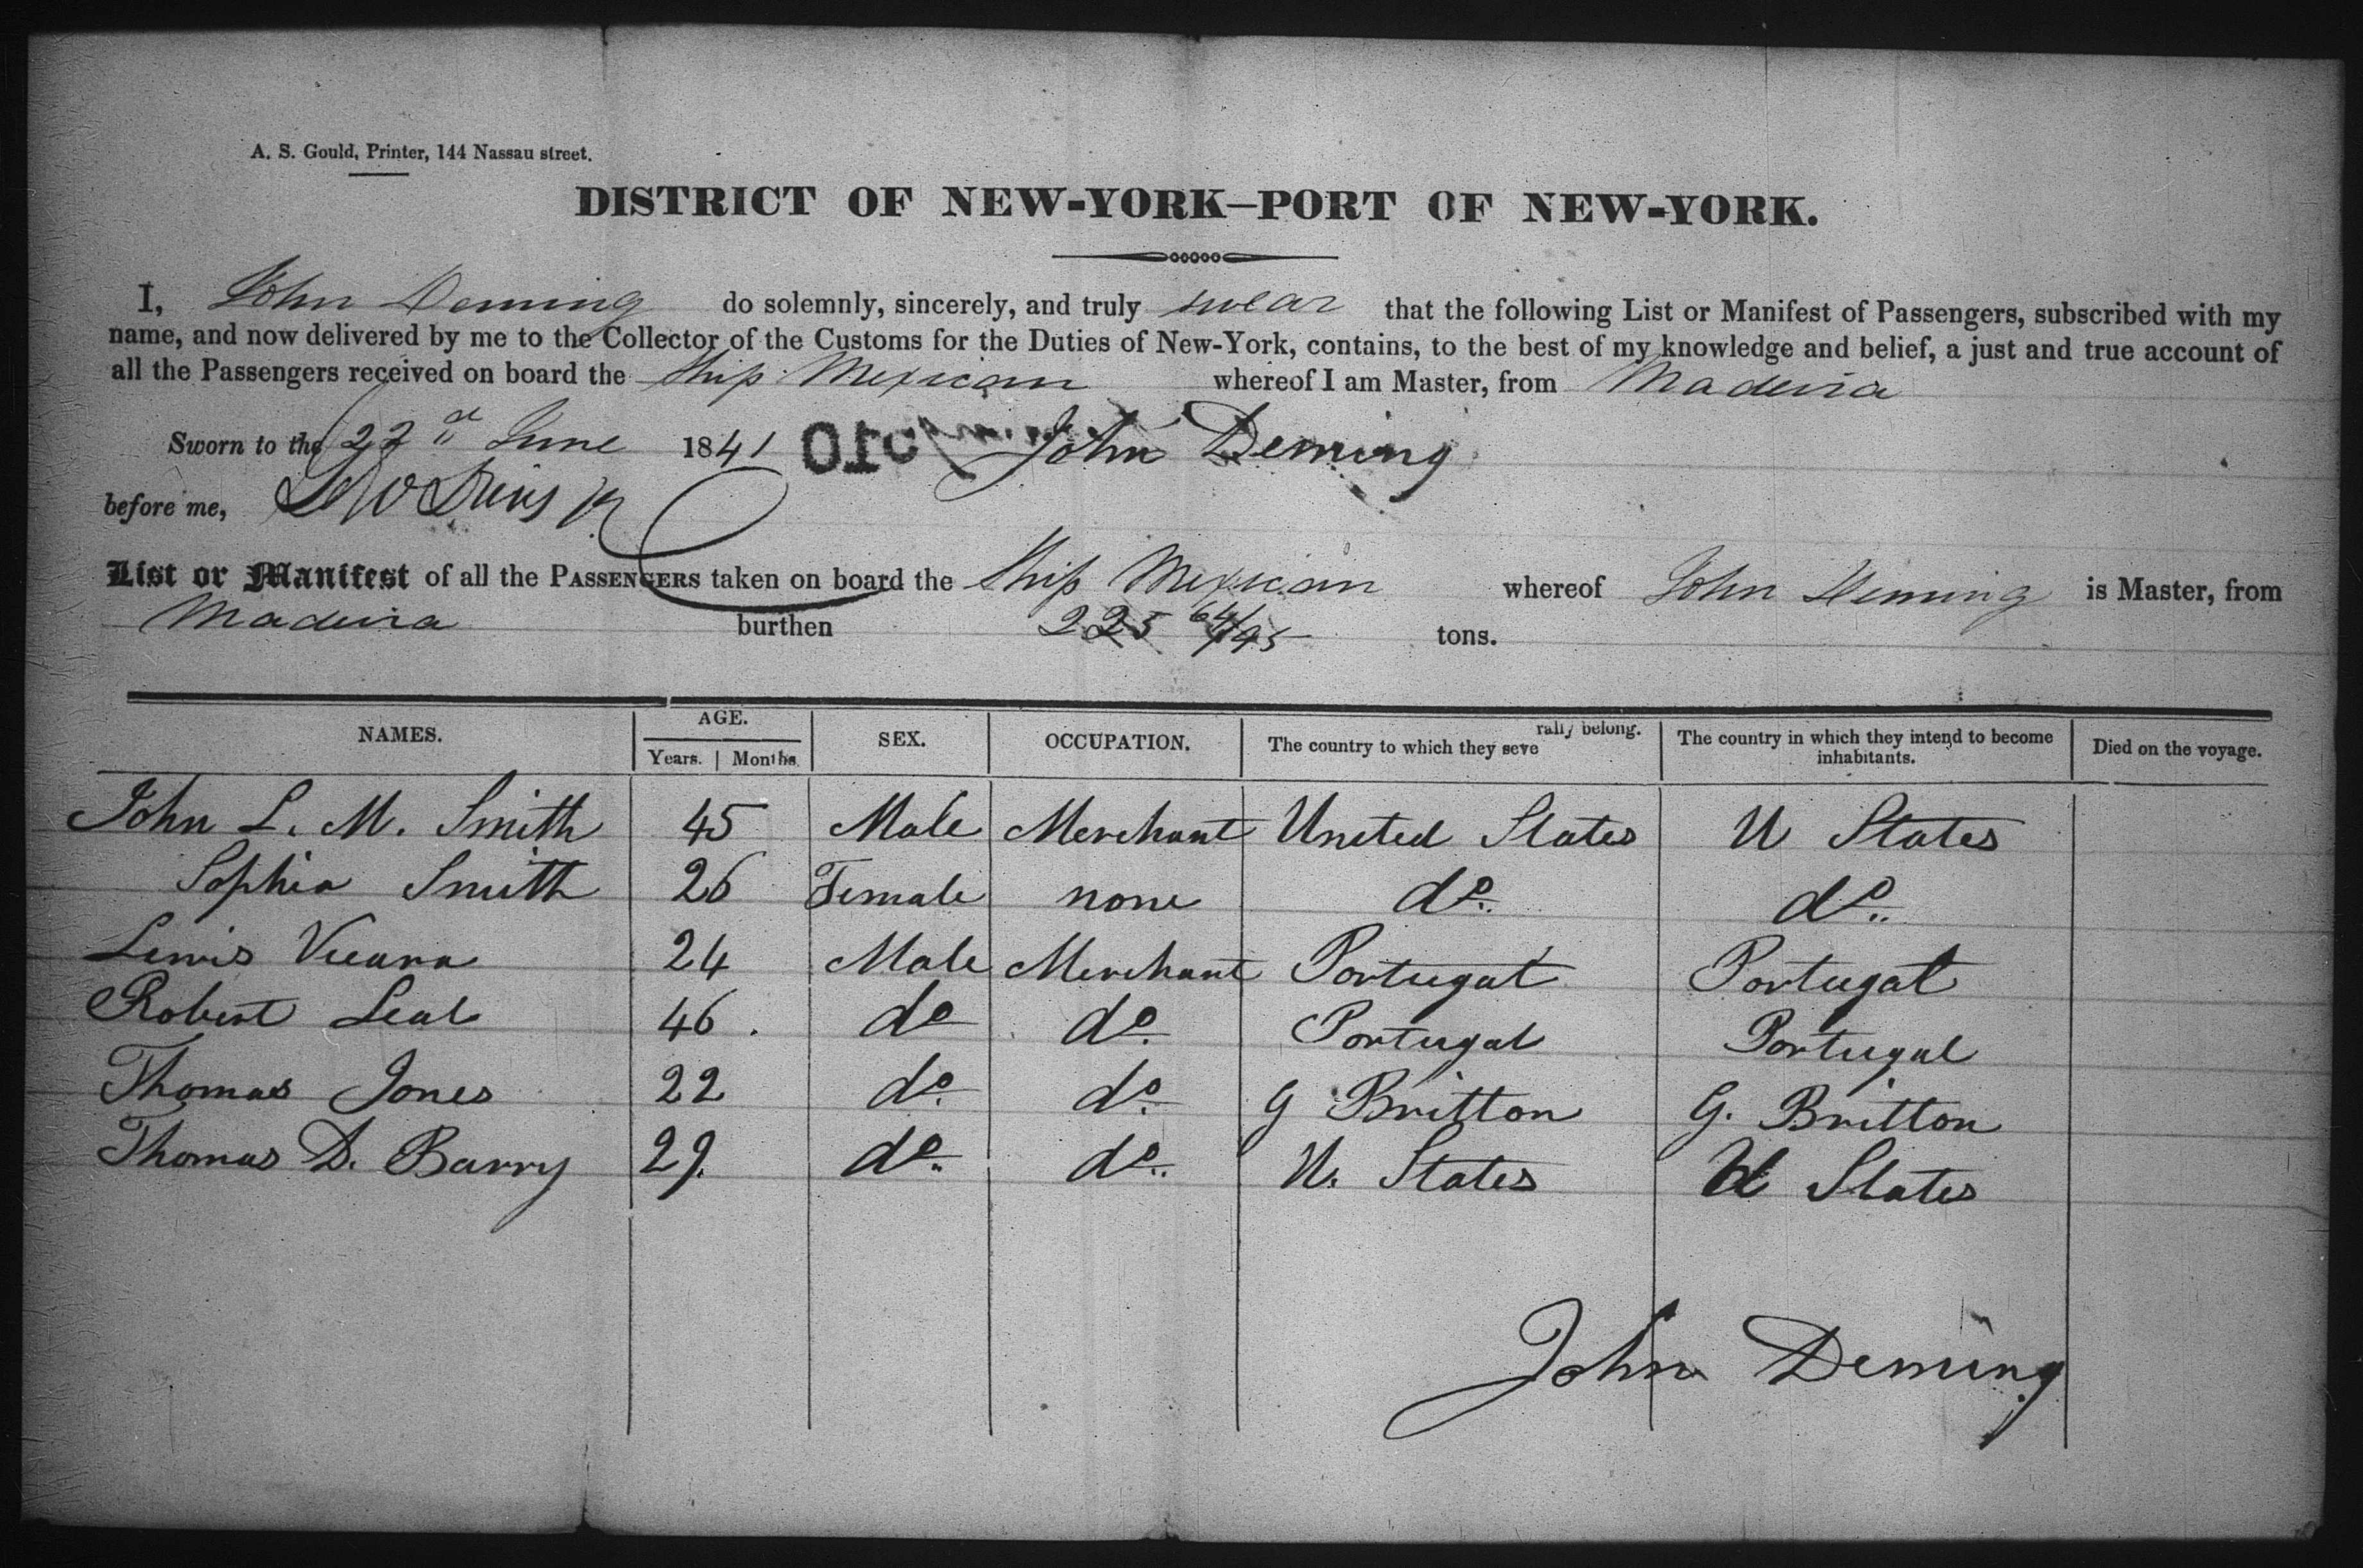 A. S. Gould, Printer, 144 Nassau street.
DISTRICT OF NEW-YORK—PORT OF NEW-YORK.
I, John Deming do solemnly, sincerely, and truly swear that the following List or Manifest of Passengers, subscribed with my
name, and now delivered by me to the Collector of the Customs for the Duties of New-York, contains, to the best of my knowledge and belief, a just and true account of
all the Passengers received on board the Ship Mexican whereof I am Master, from Madeira
Sworn to the 22d June 1841 John Deming
before me,
List or Manifest of all the PASSENGERS taken on board the Ship Mexican whereof John Deming is Master, from
Madeira burthen 225 64/95 tons.
NAMES. AGE. SEX. OCCUPATION. The country to which they severally belong. The country in which they intend to become inhabitants. Died on the voyage.
Years. Months.
John L. M. Smith 45 Male Merchant United States U States
Sophia Smith 26 Female none do. do.
Lewis 24 Male Merchant Portugal Portugal
Robert Leal 46. do do. Portugal Portugal
Thomas Jones 22 do. do. G Britton G. Britton
Thomas D. Barry 29. do. do. U. States U States
John Deming